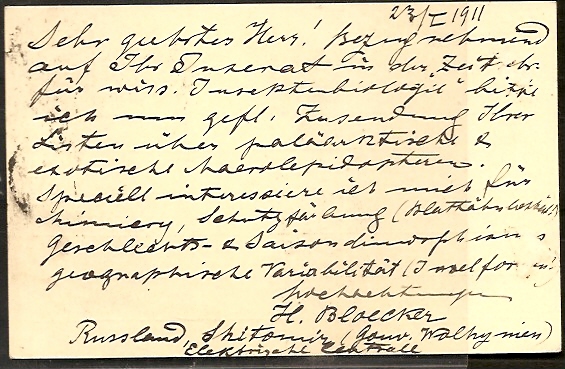 23/I 1911
Sehr geehrter Herr! Bezugnehmend
auf Ihr Inserat in der "Zeitschr.
für wiss. Insektenbiologie" bitte
ich um gefl. Zusendung Ihrer
Listen über paläarktische &
exotische Macrolepidopteren.
Speciell interessiere ich mich für
Mimicry, Schutzfärbung (Blattähnlichkeit)
Geschlechts- & Saisondimorphismus
geographische Variabilität (Inselformen)
Hochachtungsvoll
H. Bloecker
Russland, Shitomir (Gouv. Wolhynien)
Elektrische Centrale